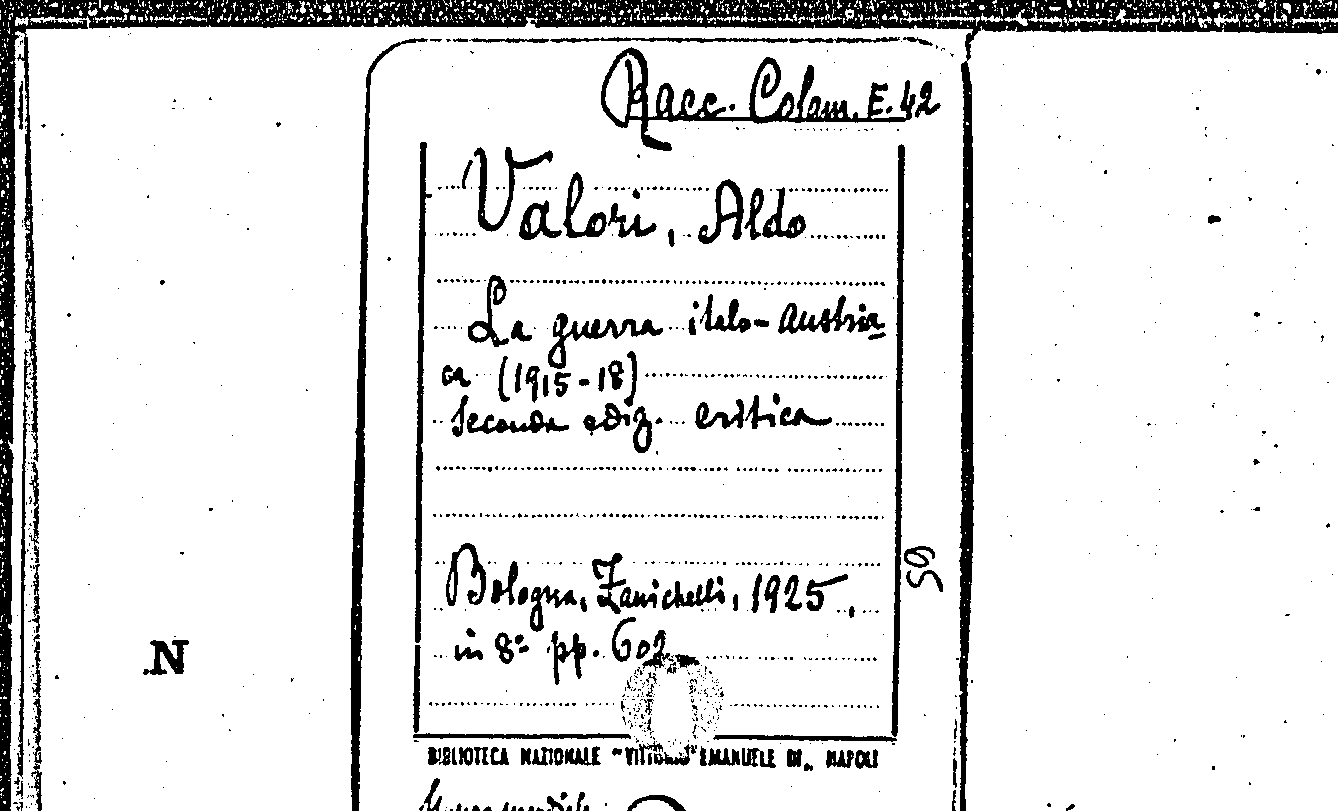 Racc. Colom. E. 42
Valori, Aldo
La guerra italo-austria
ca (1915-18)
Seconda ediz. critica
Bologna, Zanichelli, 1925,
in 8º pp. 602
59
N
BIBLIOTECA NAZIONALE "VITTORIO EMANUELE III„ NAPOLI